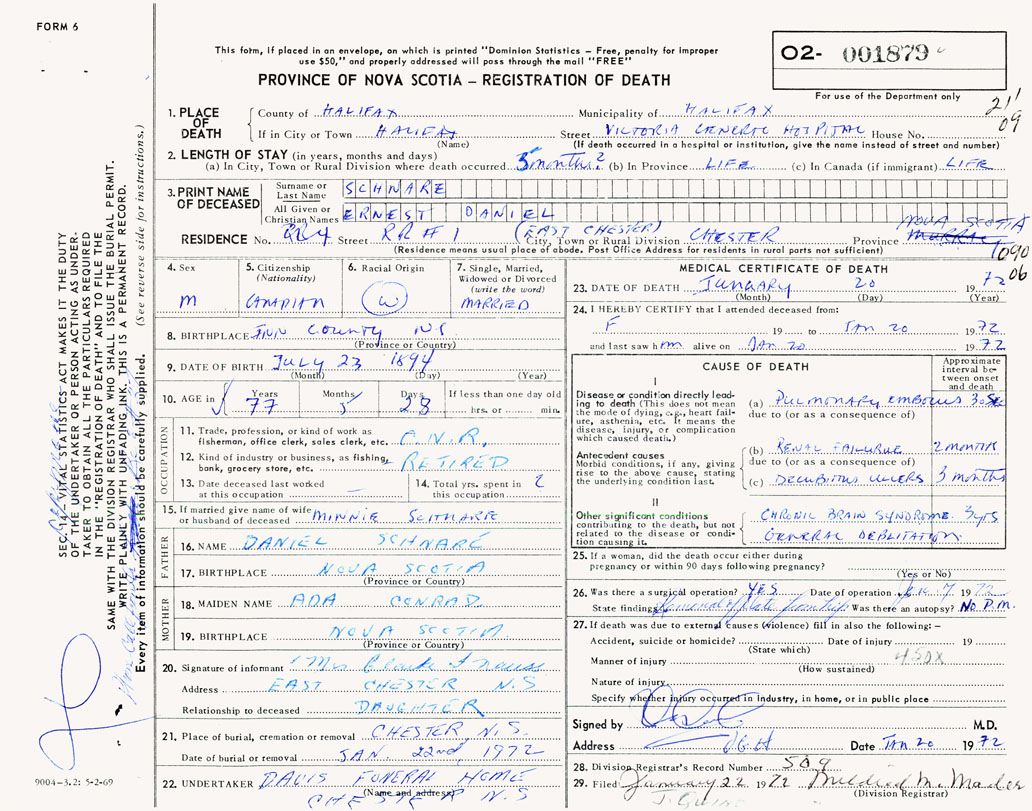 FORM 6
This form, if placed in an envelope, on which is printed "Dominion Statistics – Free, penalty for improper
use $50," and properly addressed will pass through the mail "FREE"
PROVINCE OF NOVA SCOTIA – REGISTRATION OF DEATH
O2- 001879
For use of the Department only
21'
09
1. PLACE OF DEATH
County of HALIFAX Municipality of HALIFAX
If in City or Town HALIFAX Street VICTORIA GENERAL HOSPITAL House No.
(Name) (If death occurred in a hospital or institution, give the name instead of street and number)
2. LENGTH OF STAY (in years, months and days)
(a) In City, Town or Rural Division where death occurred 3 months ? (b) In Province LIFE (c) In Canada (if immigrant) LIFE
3. PRINT NAME OF DECEASED
Surname or Last Name SCHNARE
All Given or Christian Names ERNEST DANIEL
RESIDENCE No. Street RR # 1 (EAST CHESTER) City, Town or Rural Division CHESTER Province NOVA SCOTIA
(Residence means usual place of abode. Post Office Address for residents in rural parts not sufficient)
1090
06
4. Sex
M
5. Citizenship
(Nationality)
CANADIAN
6. Racial Origin
W
7. Single, Married,
Widowed or Divorced
(write the word)
MARRIED
8. BIRTHPLACE County NS
(Province or Country)
9. DATE OF BIRTH JULY 23 1894
(Month) (Day) (Year)
10. AGE in Years Months Days If less than one day old
77 5 28 hrs. or min.
OCCUPATION
11. Trade, profession, or kind of work as
fisherman, office clerk, sales clerk, etc. C.N.R.
12. Kind of industry or business, as fishing,
bank, grocery store, etc. RETIRED
13. Date deceased last worked
at this occupation
14. Total yrs. spent in
this occupation 2
15. If married give name of wife
or husband of deceased MINNIE SCHNARE
FATHER
16. NAME DANIEL SCHNARE
17. BIRTHPLACE NOVA SCOTIA
(Province or Country)
MOTHER
18. MAIDEN NAME ADA CONRAD
19. BIRTHPLACE NOVA SCOTIA
(Province or Country)
20. Signature of informant Mrs
Address EAST CHESTER N.S
Relationship to deceased DAUGHTER
21. Place of burial, cremation or removal CHESTER, N.S.
Date of burial or removal JAN. 22nd, 1972
22. UNDERTAKER DAVIS FUNERAL HOME
(Name and address)
CHESTER N.S
MEDICAL CERTIFICATE OF DEATH
23. DATE OF DEATH JANUARY 20 1972
(Month) (Day) (Year)
24. I HEREBY CERTIFY that I attended deceased from:
F 19 to JAN 20 1972
and last saw him alive on JAN 20 1972
CAUSE OF DEATH
Approximate
interval be-
tween onset
and death
I
Disease or condition directly lead-
ing to death (This does not mean
the mode of dying, e.g., heart fail-
ure, asthenia, etc. It means the
disease, injury, or complication
which caused death.)
(a) PULMONARY EMBOLUS
due to (or as a consequence of)
Antecedent causes
Morbid conditions, if any, giving
rise to the above cause, stating
the underlying condition last.
(b) RENAL FAILURE 2 MONTHS
due to (or as a consequence of)
(c) DECUBITUS ULCERS 3 months
II
Other significant conditions
contributing to the death, but not
related to the disease or condi-
tion causing it.
CHRONIC BRAIN SYNDROME 3 yrs
GENERAL DEBLITATION.
25. If a woman, did the death occur either during
pregnancy or within 90 days following pregnancy?
(Yes or No)
26. Was there a surgical operation? YES Date of operation 7 1972
State findings Removal of plate from hip Was there an autopsy? NO P.M.
27. If death was due to external causes (violence) fill in also the following: –
Accident, suicide or homicide? Date of injury 19
(State which)
Manner of injury
(How sustained)
Nature of injury
Specify whether injury occurred in industry, in home, or in public place
Signed by M.D.
Address V.G.H Date JAN 20 1972
28. Division Registrar's Record Number 509
29. Filed January 22 1972 Mildred M. Mader
(Division Registrar)
SEC. 14 – VITAL STATISTICS ACT MAKES IT THE DUTY
OF THE UNDERTAKER OR PERSON ACTING AS UNDER-
TAKER TO OBTAIN ALL THE PARTICULARS REQUIRED
IN THE "REGISTRATION OF DEATH" AND TO FILE THE
SAME WITH THE DIVISION REGISTRAR WHO SHALL ISSUE THE BURIAL PERMIT.
WRITE PLAINLY WITH UNFADING INK. THIS IS A PERMANENT RECORD.
Every item of information should be carefully supplied. (See reverse side for instructions.)
9004-3.2: 5-2-69